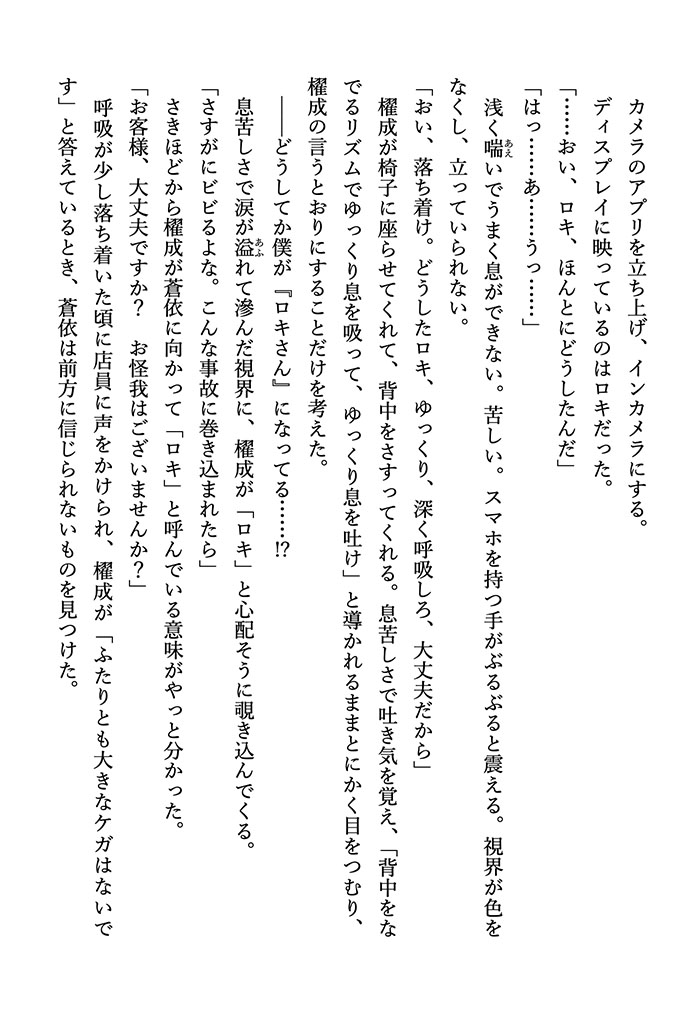 カメラのアプリを立ち上げ、インカメラにする。
ディスプレイに映っているのはロキだった。
「……おい、ロキ、ほんとにどうしたんだ」
「はっ……あ……うっ……」
浅く喘いでうまく息ができない。苦しい。スマホを持つ手がぶるぶると震える。視界が色を
なくし、立っていられない。
「おい、落ち着け。どうしたロキ、ゆっくり、深く呼吸しろ、大丈夫だから」
櫂成が椅子に座らせてくれて、背中をさすってくれる。息苦しさで吐き気を覚え、「背中をな
でるリズムでゆっくり息を吸って、ゆっくり息を吐け」と導かれるままとにかく目をつむり、
櫂成の言うとおりにすることだけを考えた。
――どうしてか僕が『ロキさん』になってる……⁉
息苦しさで涙が溢れて滲んだ視界に、櫂成が「ロキ」と心配そうに覗き込んでくる。
「さすがにビビるよな。こんな事故に巻き込まれたら」
さきほどから櫂成が蒼依に向かって「ロキ」と呼んでいる意味がやっと分かった。
「お客様、大丈夫ですか？　お怪我はございませんか？」
呼吸が少し落ち着いた頃に店員に声をかけられ、櫂成が「ふたりとも大きなケガはないで
す」と答えているとき、蒼依は前方に信じられないものを見つけた。